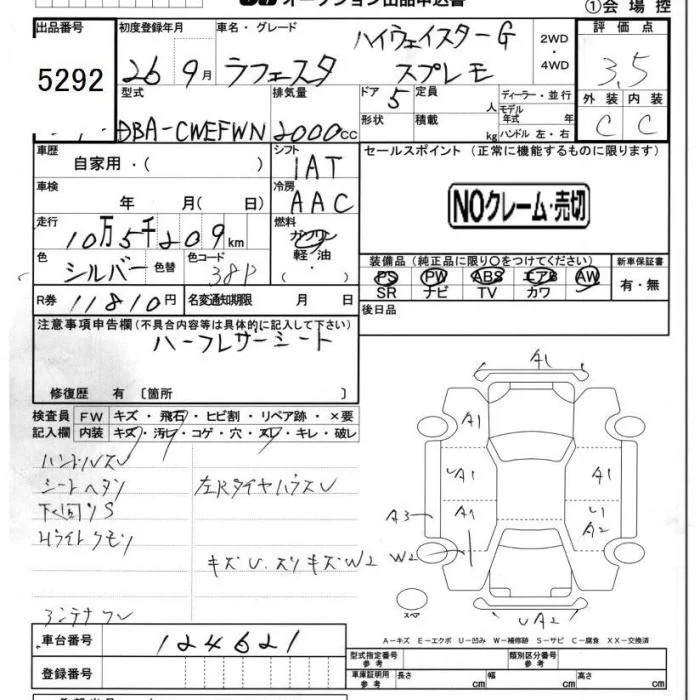 オークション出品申込書
①会場控
出品番号 初度登録年月 車名・グレード 評価点
5292 26 9月 ラフェスタ ハイウェイスターG スプレモ 2WD・4WD 3.5
型式 排気量 ドア 定員 ディーラー・並行 外装 内装
DBA-CWEFWN 2000cc 5 人 モデル年式 年 C C
形状 積載 kg ハンドル 左・右
車歴 自家用・( ) シフト IAT セールスポイント (正常に機能するものに限ります)
車検 年 月( 日) 冷房 AAC
NOクレーム・売切
走行 10万5千209km 燃料 ガソリン 軽油 ( ・ )
装備品 (純正品に限り○をつけてください) 新車保証書
色 シルバー 色替 色コード 38P
PS PW ABS エアB AW 有・無
SR ナビ TV カワ
R券 11810円 名変通知期限 月 日 後日品
注意事項申告欄(不具合内容等は具体的に記入して下さい)
ハーフレザーシート
修復歴 有 [箇所 ]
検査員 FW キズ・飛石・ヒビ割・リペア跡・×要
記入欄 内装 キズ・汚レ・コゲ・穴・スレ・キレ・破レ
A1
A1
ハンドルスレ
シートヘタリ 左Rタイヤハウスレ
UA1 A1
下回リS
A3 A1 U1 A2
Hライトクモリ
キズU.スリキズW2 W2
アンテナ
スペア
UA2
A-キズ E-エクボ U-凹み W-補修跡 S-サビ C-腐食 XX-交換済
車台番号 124621
型式指定番号 参考 類別区分番号 参考
登録番号
車庫証明用 参考 長さ cm 幅 cm 高さ cm